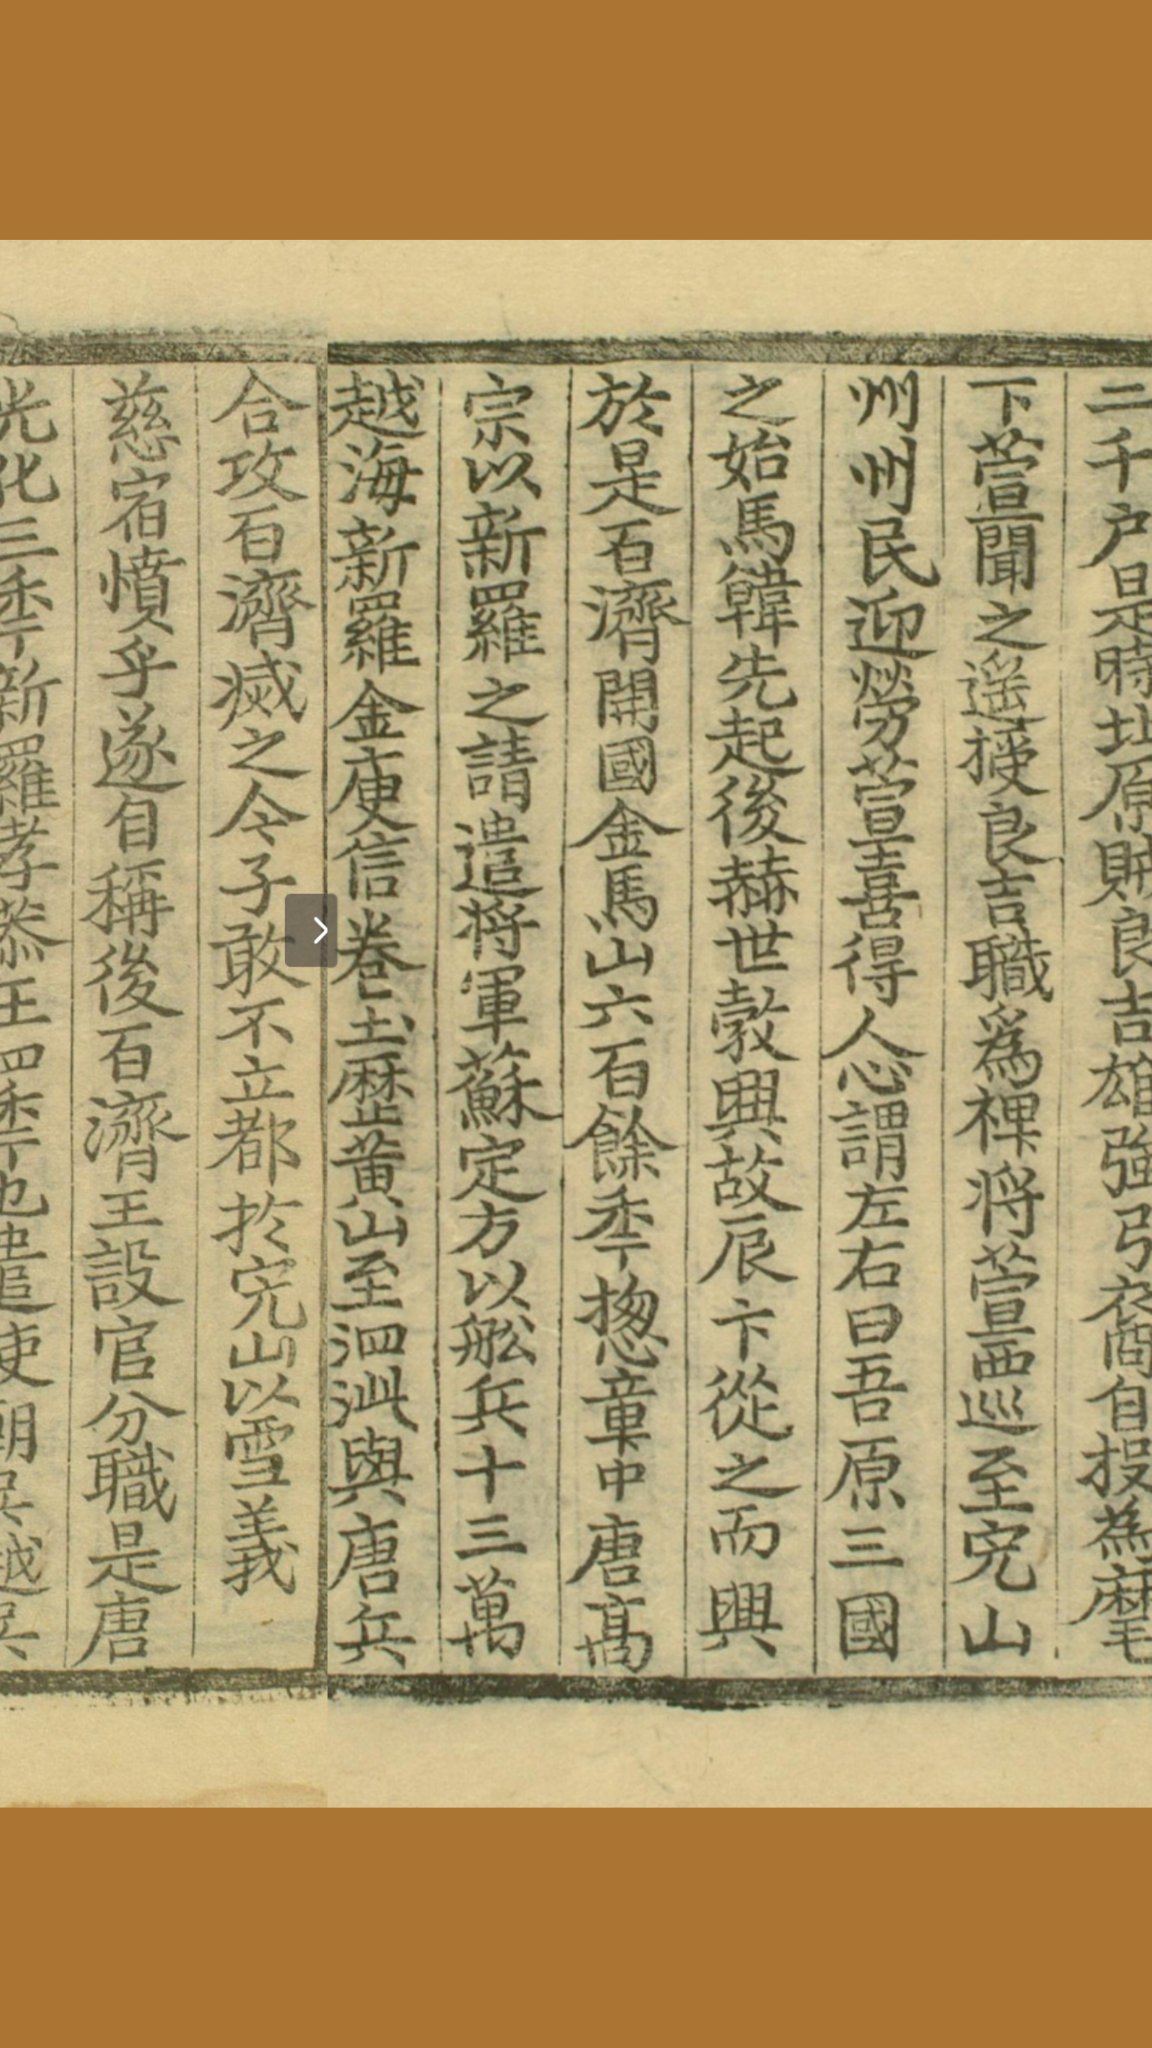 二千户是時北原賊良吉雄強弓裔自投為麾
下萱聞之遥授良吉職爲裨将萱西巡至完山
州州民迎勞萱喜得人心謂左右曰吾原三國
之始馬韓先起後赫世㪍興故辰卞從之而興
於是百濟開國金馬山六百餘秊揔章中唐髙
宗以新羅之請遣将軍蘇定方以舩兵十三萬
越海新羅金庾信卷土歴黄山至泗沘與唐兵
合攻百濟滅之今予敢不立都於完山以雪義
慈宿憤乎遂自稱後百濟王設官分職是唐
光化三秊新羅孝恭王四秊也遣使朝吳越吳